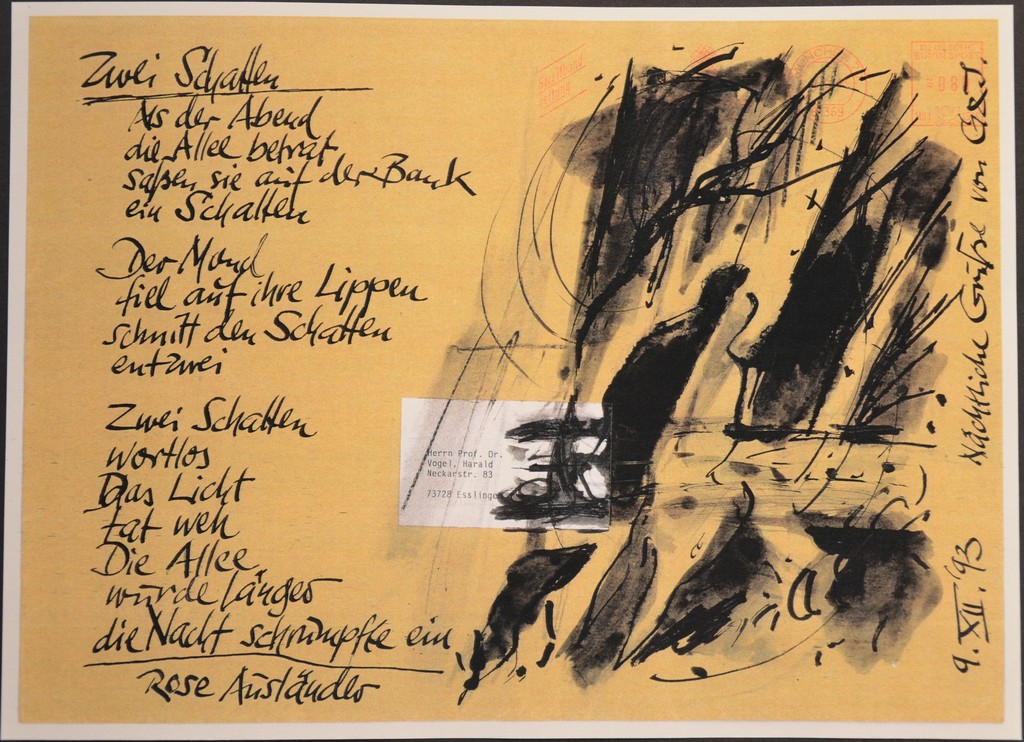 Zwei Schatten
Als der Abend
die Allee betrat
saßen sie auf der Bank
ein Schatten
Der Mond
fiel auf ihre Lippen
schnitt den Schatten
entzwei
Zwei Schatten
wortlos
Das Licht
tat weh
Die Allee
wurde länger
die Nacht schrumpfte ein
Rose Ausländer
Herrn Prof. Dr.
Vogel, Harald
Neckarstr. 83
73728 Esslinge
9. XII. '93 Nächtliche Grüße von